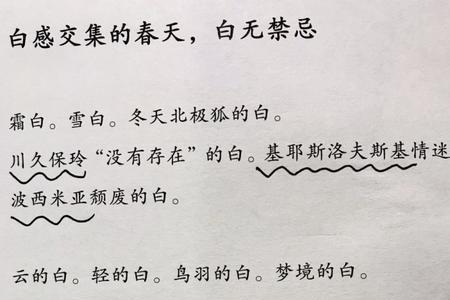 白感交集的春天，白无禁忌
霜白。雪白。冬天北极狐的白。
川久保玲“没有存在”的白。基耶斯洛夫斯基情迷
波西米亚颓废的白。
云的白。轻的白。鸟羽的白。梦境的白。